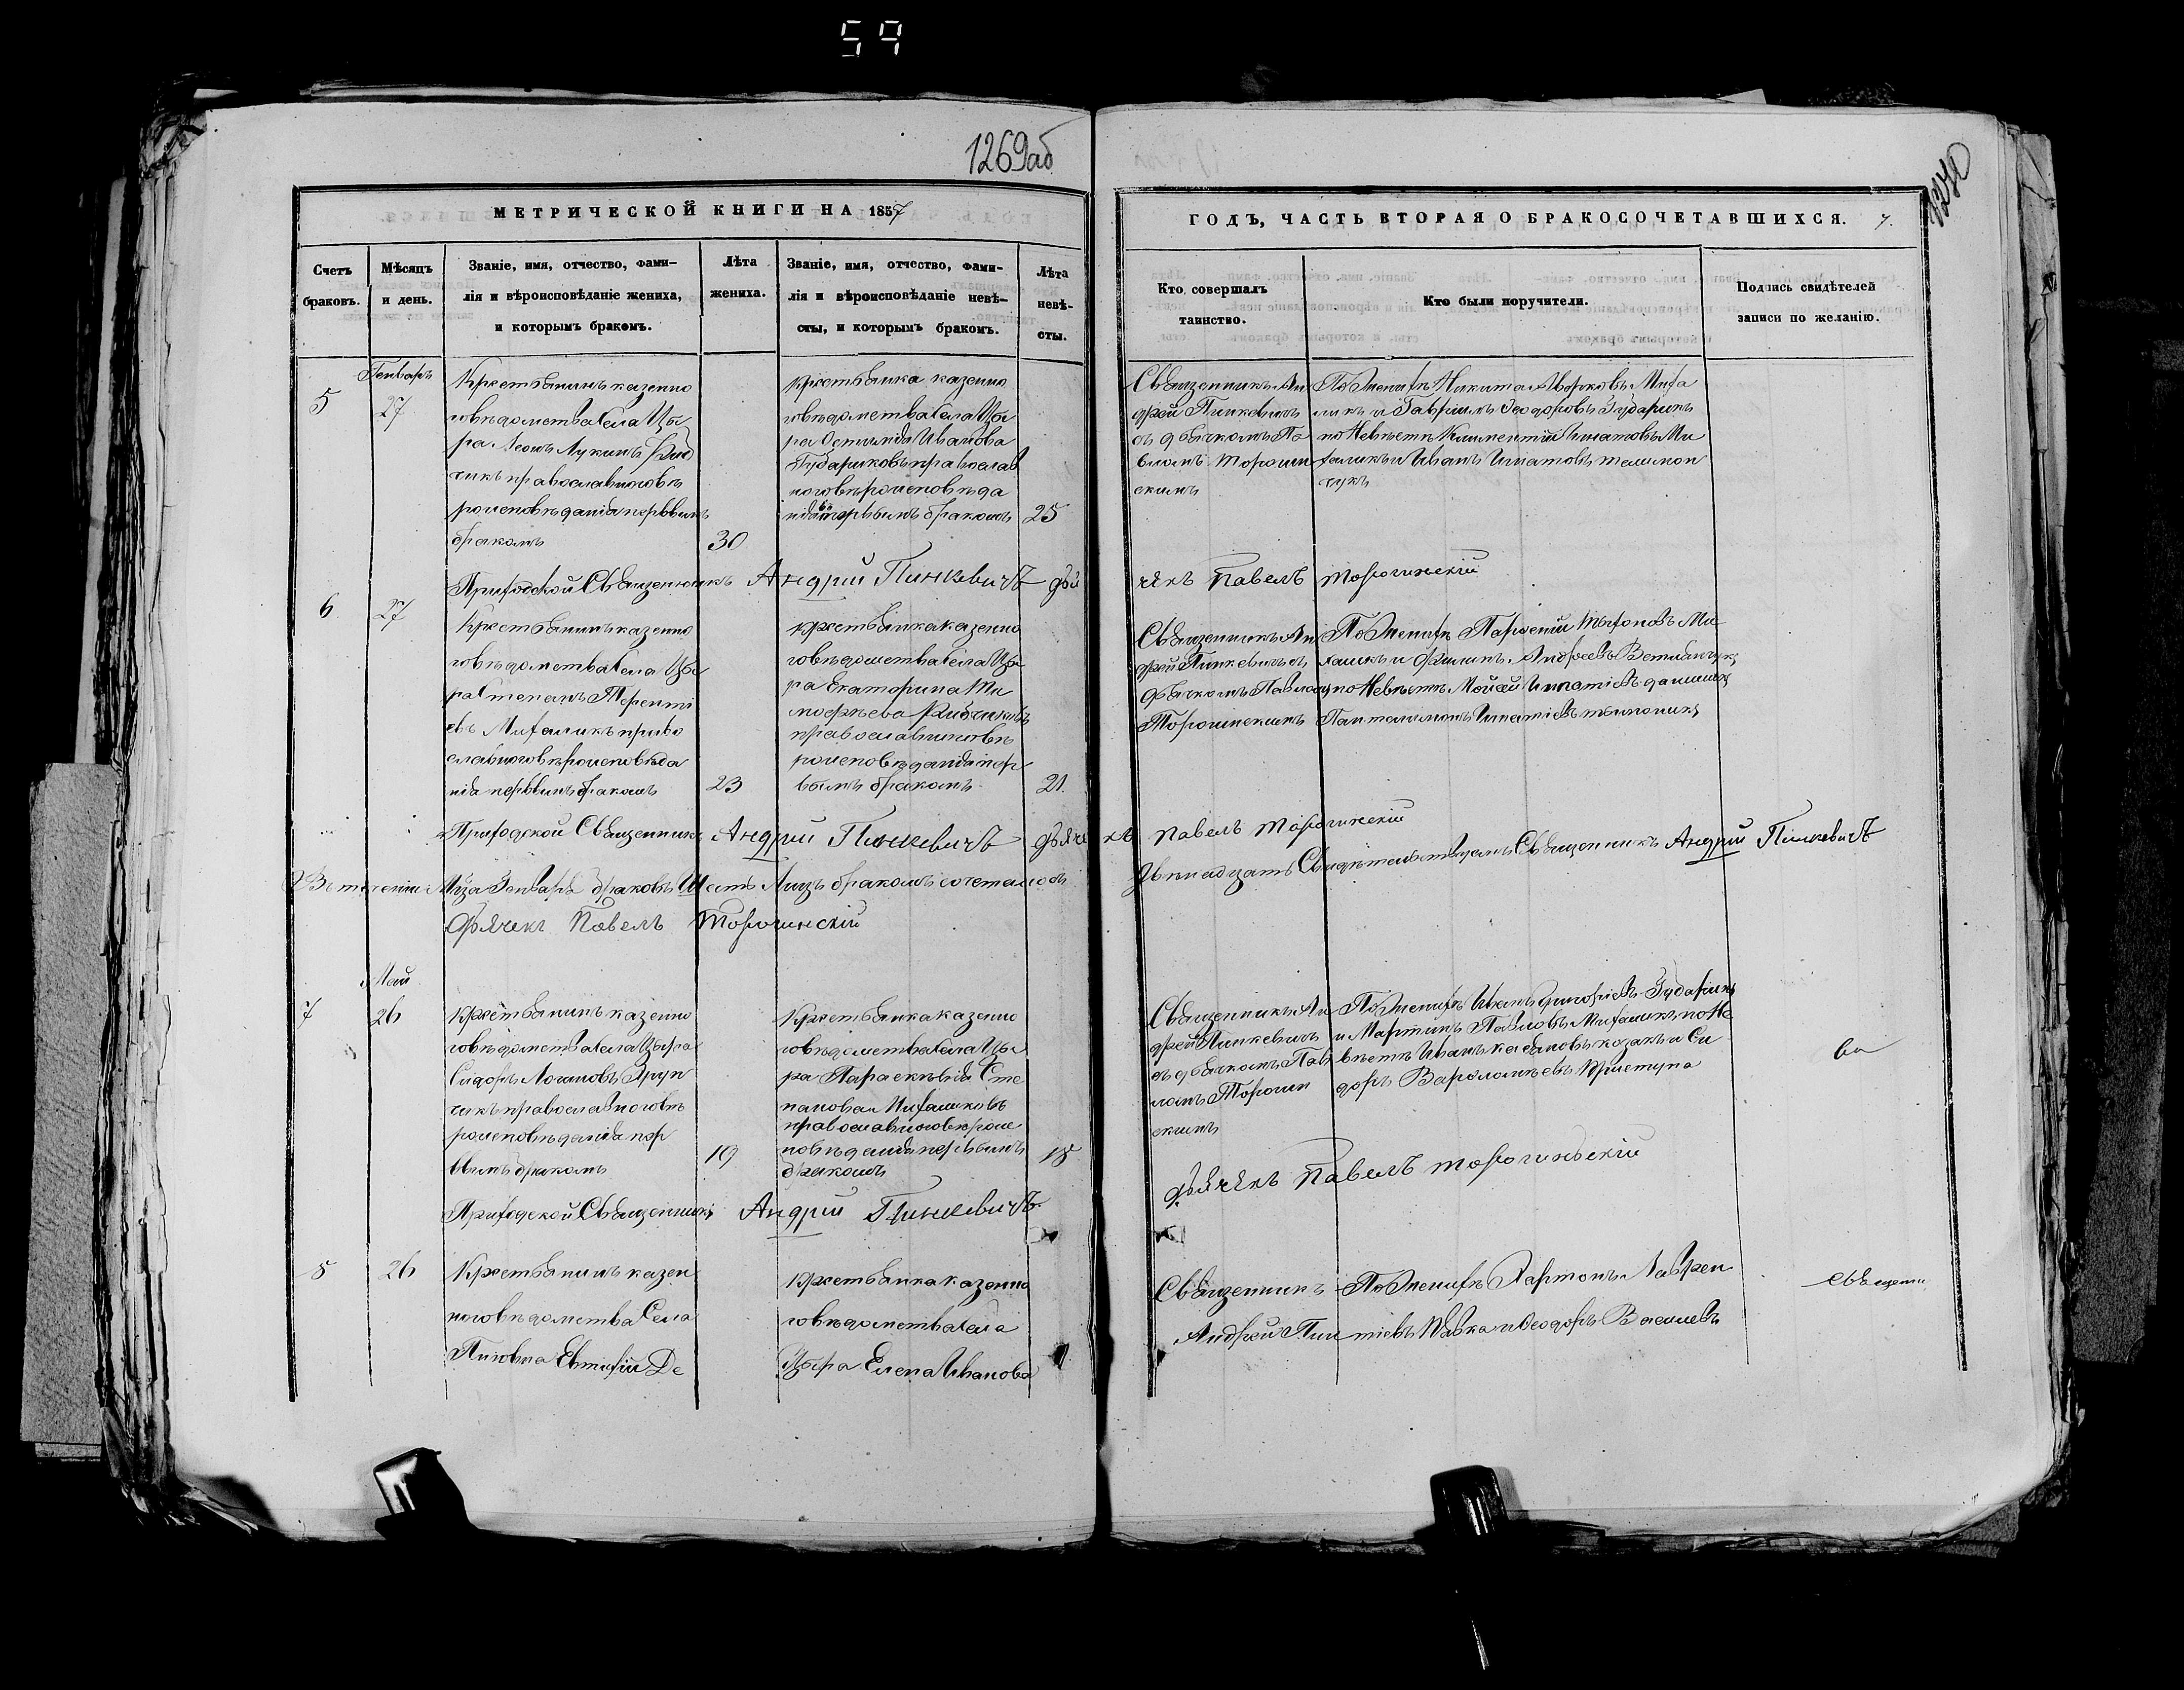 59
1269об
1270
МЕТРИЧЕСКОЙ КНИГИ НА 1857
ГОДЪ, ЧАСТЬ ВТОРАЯ О БРАКОСОЧЕТАВШИХСЯ. 7.
Счетъ браковъ.
Мѣсяцъ и день.
Званіе, имя, отчество, фами-
лія и вѣроисповѣданіе жениха,
и которымъ бракомъ.
Лѣта жениха.
Званіе, имя, отчество, фами-
лія и вѣроисповѣданіе невѣ-
сты, и которымъ бракомъ.
Лѣта невѣ-
сты.
Кто совершалъ
таинство.
Кто были поручители.
Подпись свидѣтелей
записи по желанію.
Генварь
5
27
Крестьянинъ казенно
го вѣдомства Села Цы
ра Леонъ Лукинъ
чикъ православнаго вѣ
роисповѣданія первымъ
бракомъ
30
крестьянка казенно
го вѣдомства Села Цы
ра Иванова
православ
наго вѣроисповѣда
нія бракомъ
25
Священникъ Ан
дрей Пинкевичъ
съ дьячкомъ Па
вломъ Торочин
скимъ
По Женихѣ Никита Миха
ликъ и Гавріилъ Ѳеодоровъ Гударикъ
по Невѣстѣ Климентій Игнатовъ Ми
халикъ и Иванъ Игнатовъ
чукъ
Приходской Священникъ Андрій Пинкевичъ дья
чекъ Павелъ Торочинскій
6
27
Крестьянинъ казенно
го вѣдомства Села Цы
ра Степанъ Теренті
евъ Михаликъ право
славнаго вѣроисповѣда
нія первымъ бракомъ
23
крестьянка казенно
го вѣдомства Села Цы
ра Екатерина Ти
моѳѣева
православнаго вѣ
роисповѣданія пер
вымъ бракомъ
21
Священникъ Ан
дрей Пинкевичъ съ
дьячкомъ Павломъ
Торочинскимъ
По Женихѣ Парѳеній Ми
халикъ и Филипъ Андреевъ
по Невѣстѣ Мойсей Игнатіевъ
Пантелимонъ Игнатіевъ
Приходской Священникъ Андрій Пинкевичъ дьяче
къ Павелъ Торочинскій
Въ теченіи Мѣсяца Генваря браковъ Шесть Лицъ бракомъ сочеталось
Двѣнадцать Свидѣтельствуемъ Священникъ Андрій Пинкевичъ
Дьячекъ Павелъ Торочинскій
Май
7
26
Крестьянинъ казенно
го вѣдомства Села Цыра
Сидоръ Логиновъ
чикъ православнаго вѣ
роисповѣданія пер
вымъ бракомъ
19
Крестьянка казенно
го вѣдомства Села Цы
ра Параскѣвія Сте
панова Михаликовъ
православнаго вѣроис
повѣданія первымъ
бракомъ
18
Священникъ Ан
дрей Пинкевичъ
съ дьячкомъ Пав
ломъ Торочин
скимъ
По Женихѣ Иванъ Григоріевъ Гударикъ
и Мартинъ Павловъ Михаликъ по Не
вѣстѣ Иванъ Касяновъ козакъ и Си
доръ Варѳоломѣевъ Криступа
Приходской Священникъ Андрій Пинкевичъ
дьячекъ Павелъ Торочиньскій
8
26
Крестьянинъ казен
ного вѣдомства Села
Евтихій Де
крестьянка казенно
го вѣдомства Села
Цыра Елена Иванова
Священникъ
Андрей Пин
По Женихѣ Харитонъ Лаврен
тіевъ и Ѳеодоръ Василевъ